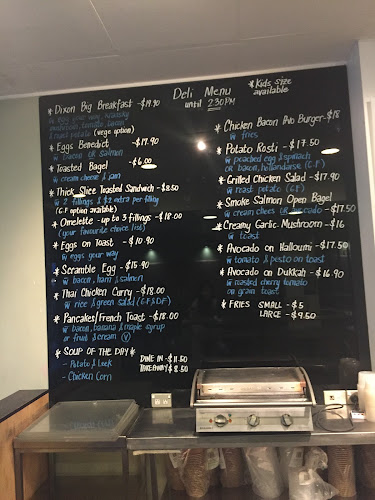 Deli Menu
until 2:30PM
*Kids size
available
* Dixon Big Breakfast -$19.90
w egg your way, kransky
mushroom, tomato, bacon
& roast potato (vege option)
* Eggs Benedict -$17.90
w bacon OR salmon
* Toasted Bagel -$6.00
w cream cheese & jam
* Thick Slice Toasted Sandwich -$8.50
w 2 fillings & $2 extra per filling
(G.F option available)
* Omelette - up to 3 fillings -$18.00
(your favourite choice list)
* Eggs on Toast -$10.90
w eggs your way
* Scramble Egg -$15.90
w bacon, ham & salmon
* Thai Chicken Curry -$18.00
w rice & green salad (GF&DF)
* Pancakes/French Toast -$18.00
w bacon, banana & maple syrup
or fruit & cream (V)
* SOUP OF THE DAY *
- Potato & Leek
- Chicken Corn
DINE IN -$11.50
TAKEAWAY $8.50
* Chicken Bacon Avo Burger -$18
w fries
* Potato Rosti -$17.50
w poached egg & spinach
or bacon, hollandaise (G.F)
* Grilled Chicken Salad -$17.90
w roast potato (GF)
* Smoke Salmon Open Bagel
w cream chees OR avocado -$17.50
* Creamy Garlic Mushroom -$16
w toast
* Avocado on Halloumi -$17.50
w tomato & pesto on toast
* Avocado on Dukkah -$16.90
w roasted cherry tomato
on grain toast
* FRIES SMALL -$5
LARGE -$9.50